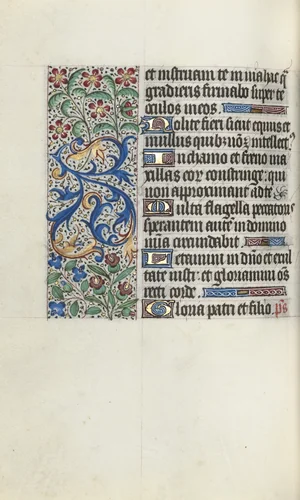 et instruam te in via hac q̄
gradieris firmabo super te
oculos meos.
Nolite fieri sicut equus et
mulus quibus nō intellect⁹
In chamo et freno ma
xillas eor constringe: qui
non approximant ad te
Multa flagella peccatoris
sperantem autē in domino
mīa circundabit
Letamini in dn̄o et exul
tate iusti: et gloriamini oēs
recti corde.
Gloria patri et filio. ps̄